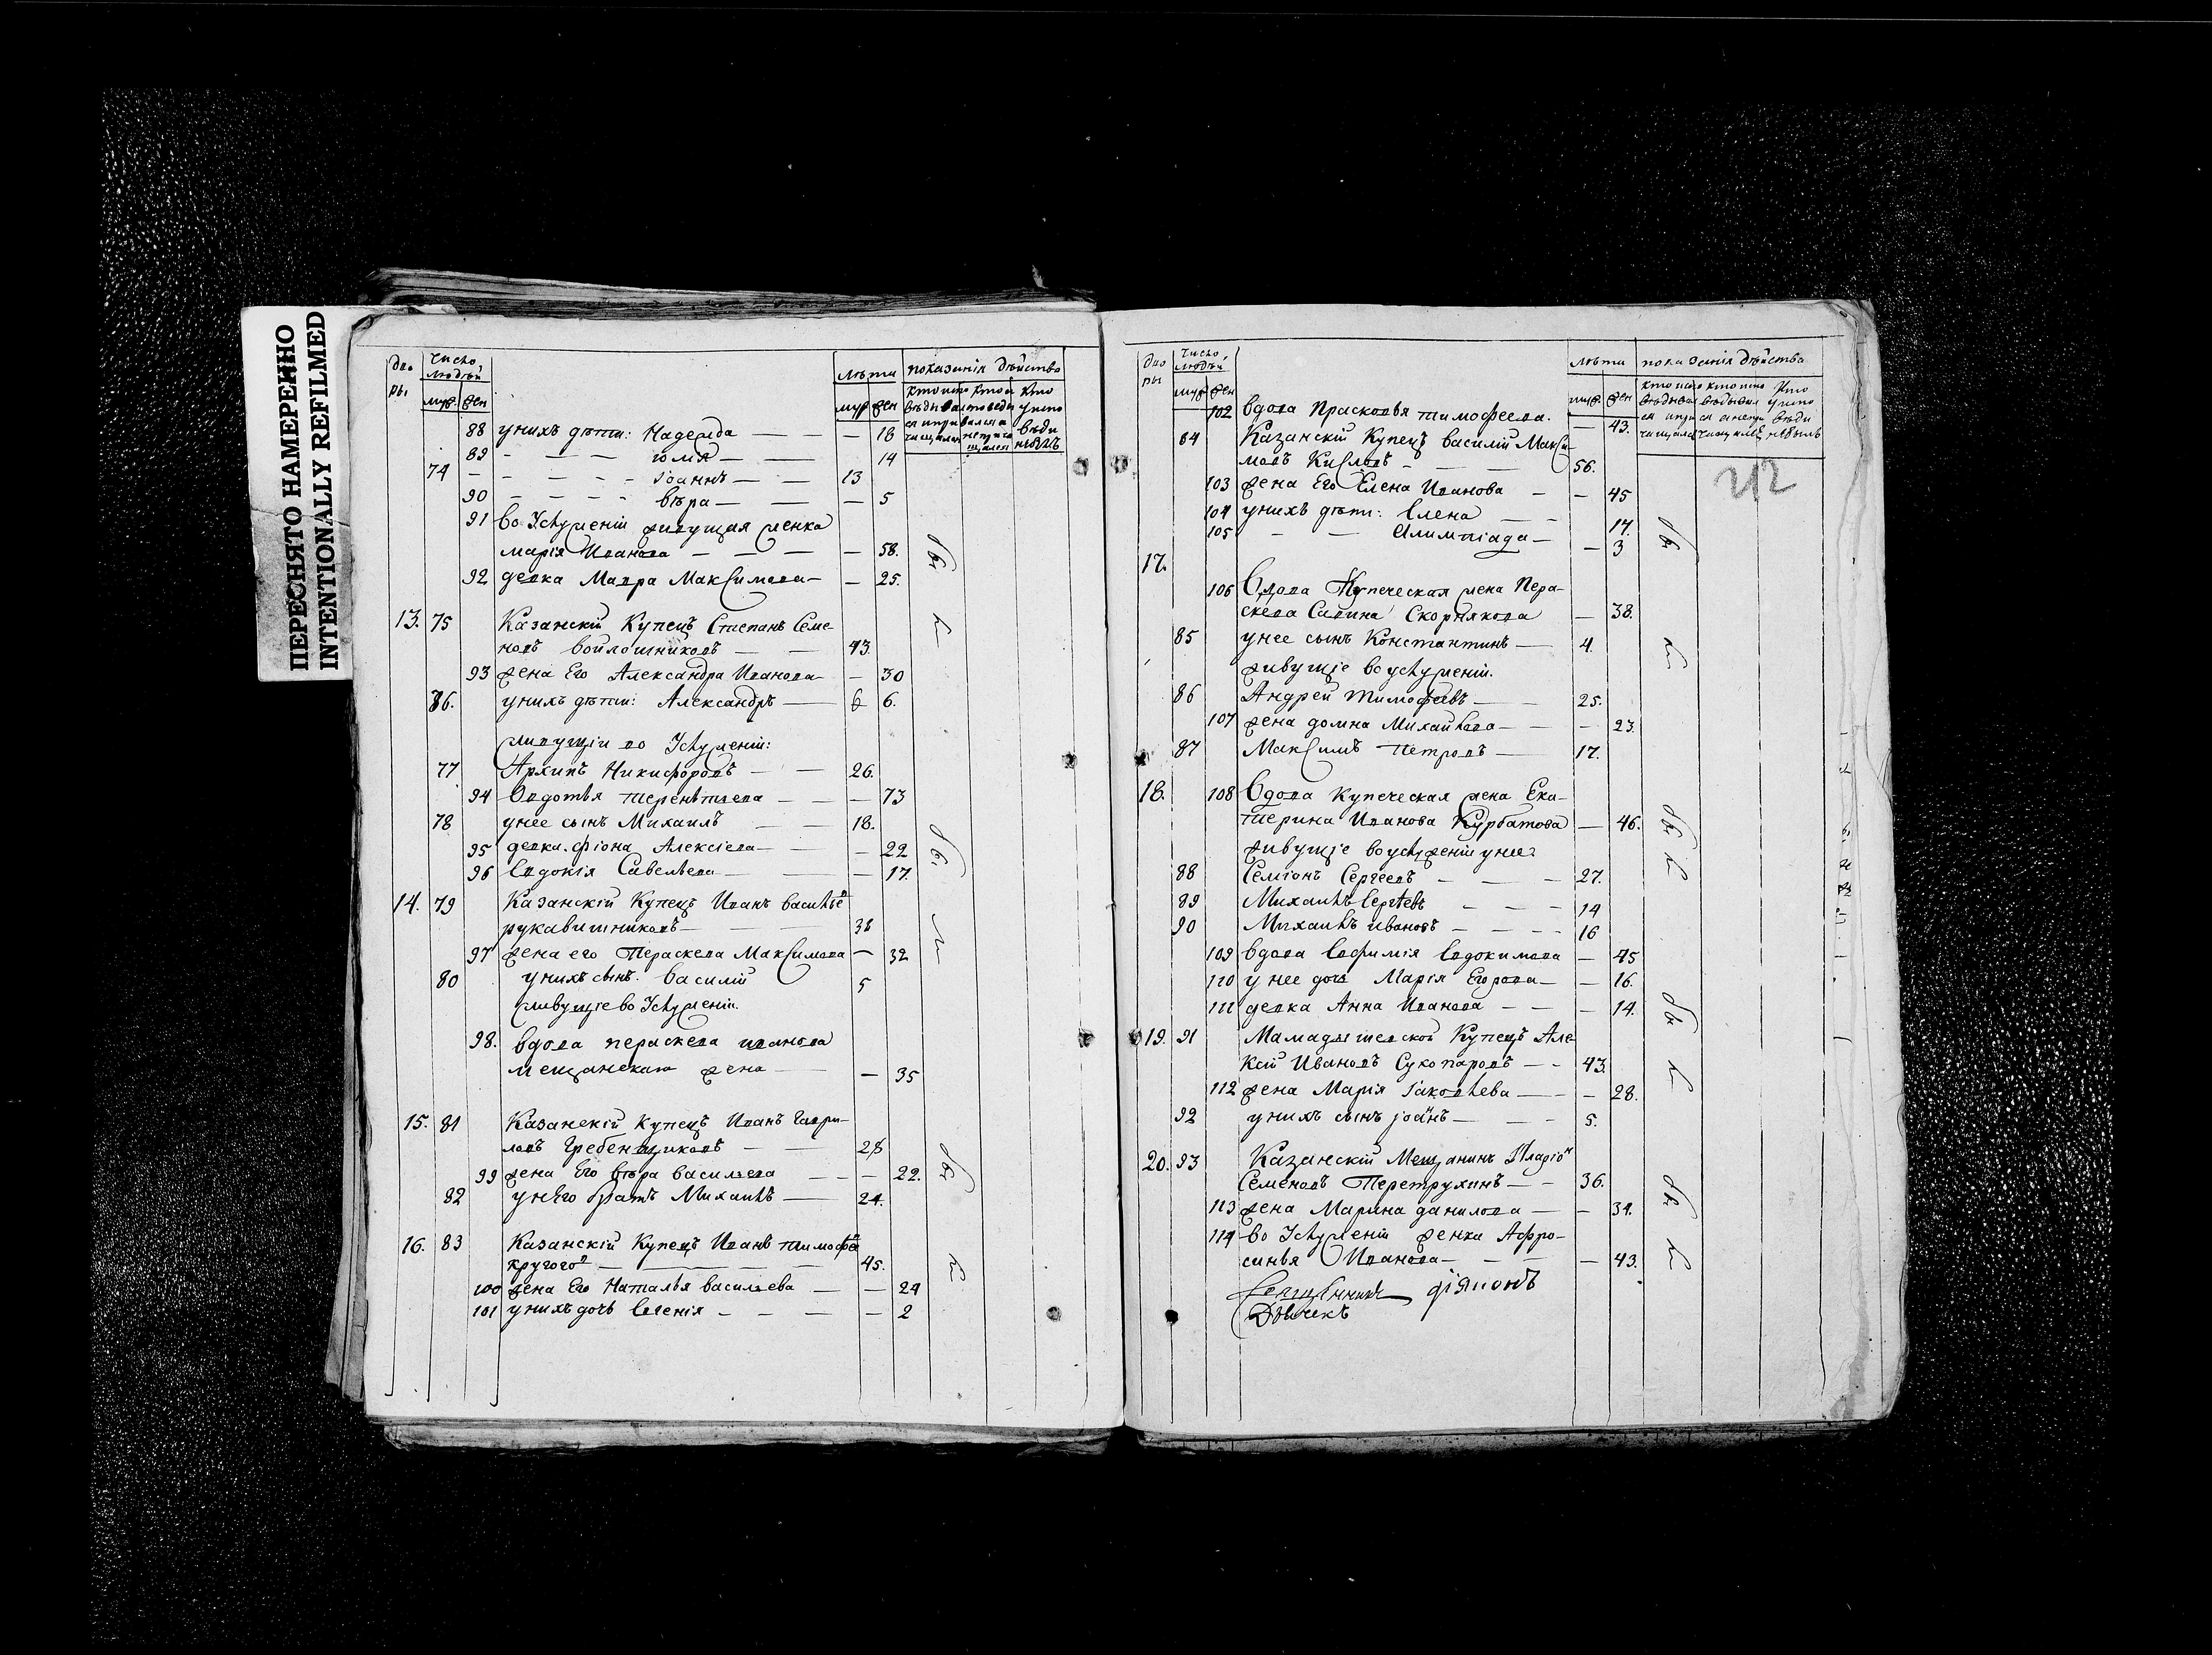 ПЕРЕСНЯТО НАМЕРЕННО
INTENTIONALLY REFILMED
Дво
ры
Число
людѣй
муж жен
лѣта
муж жен
показанія дѣйство
88 унихъ дѣти: Надежда — — — 18
89 — — — юлія — — 14
74 — — — — іоаннъ — — 13
90 — — — — вѣра — — — 5
91 во Услуженіи живущая женка
марія Иванова — — — — 58.
92 девка Мавра Максимова — — 25.
13. 75 Казанскій Купецъ Степанъ Семе-
новъ войлошниковъ — — 43.
93 жена Его Александра Иванова — — 30
76. унихъ дѣти: Александръ — 6 6.
живущіи во Услуженіи:
77 Архипъ Никифоровъ — — 26.
94 Овдотья терентьева — — — 73
78 унее сынъ Михаилъ — 18.
95 девки. фіона Алексіева — — 22
96 Евдокія Савельева — — 17.
14. 79 Казанскій Купецъ Иванъ василье
рукавишниковъ — 38
97 жена его Пераскева Максимова — 32
80 унихъ сынъ. василій 5
живущіе во Услуженіи.
98. вдова пераскева иванова
мещанская жена — — 35
15. 81 Казанскій Купецъ Иванъ Гаври-
ловъ Гребенщиковъ — 28
99 жена Его вѣра васильева — — — 22.
82 унЕго братъ Михаилъ — 24.
16. 83 Казанскій Купецъ Иванъ тимофѣе
45.
100 жена Его Наталья васильева — — 24
101 унихъ дочь Евгенія — — — — 2
Дво
ры
Число
людѣй
муж жен
лѣта
муж жен
показанія дѣйства
102 вдова Прасковья тимофеева. — 43.
84 Казанскій Купецъ василій Макси-
мовъ Кисловъ — 56.
103 жена Его Елена Иванова — — 45
104 унихъ дѣти: Елена — — 17.
105 — — Олимпіада — — 3
212
17.
106 вдова Купеческая жена Пера-
скева Савина Скорнякова — 38.
85 унее сынъ Константинъ — 4.
живущіе во услуженіи.
86 Андрей тимофеевъ — — 25.
107 жена домна Михайлова — — 23.
87 Максимъ петровъ — 17.
18. 108 вдова купеческая жена Ека-
терина Иванова Курбатова — 46.
живущіе во услуженіи унее:
88 Семіонъ Сергеевъ — — — 27.
89 Михаилъ Сергѣевъ — — — 14
90 Михаилъ ивановъ — — — — 16
109 вдова Евфимія Евдокимова — 45
110 у нее дочь Марія Егорова — — 16.
111 девка Анна Иванова — — — 14.
19. 91 Мамадышевской Купецъ Але
ксій Ивановъ Сухопаровъ — — 43.
112 жена Марія Іаковлева — — — 28.
92 унихъ сынъ іоаннъ — — — 5.
20. 93 Казанскій Мещанинъ
Семеновъ Перетрухинъ — — 36.
113 жена Марина данилова — — 31.
114 во Услуженіи женка Афро-
синья Иванова — — — — 43.